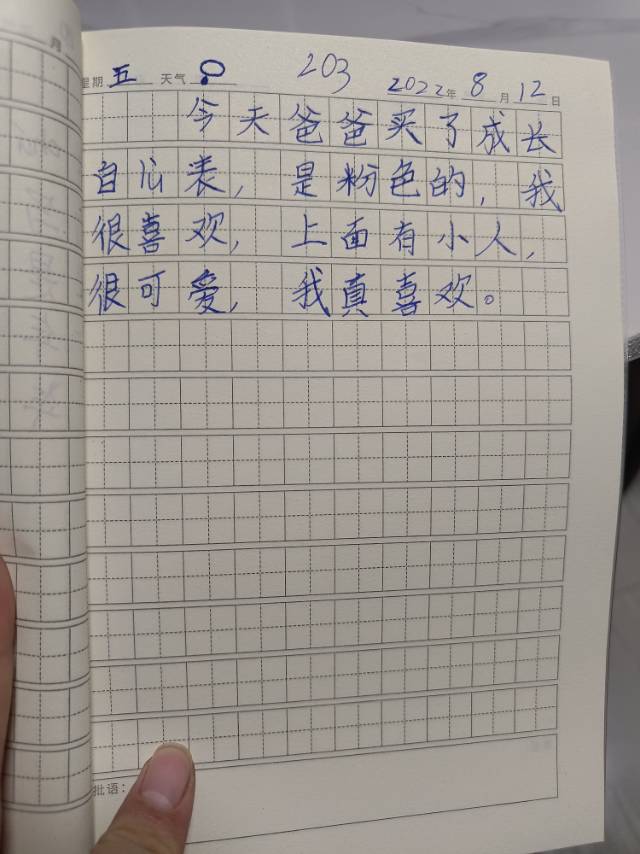 月
星期 五 天气 203 2022年 8 月 12 日
今天爸爸买了成长
自心表，是粉色的，我
很喜欢，上面有小人，
很可爱，我真喜欢。
批语：